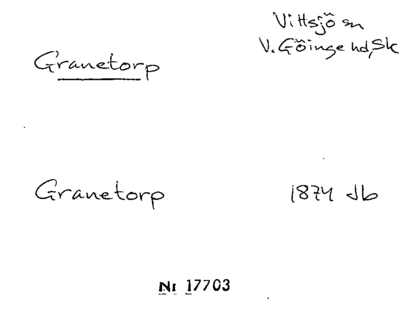 Vittsjö sn
V. Göinge hd, Sk
Granetorp
Granetorp 1874 Jb
Nr 17703